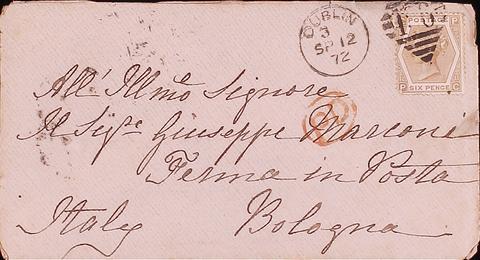 DUBLIN
3
SP 12
72
POSTAGE
P P
P SIX PENCE C
All' Illmo Signore
Il Sigre Giuseppe Marconi
Ferma in Posta
Italy Bologna